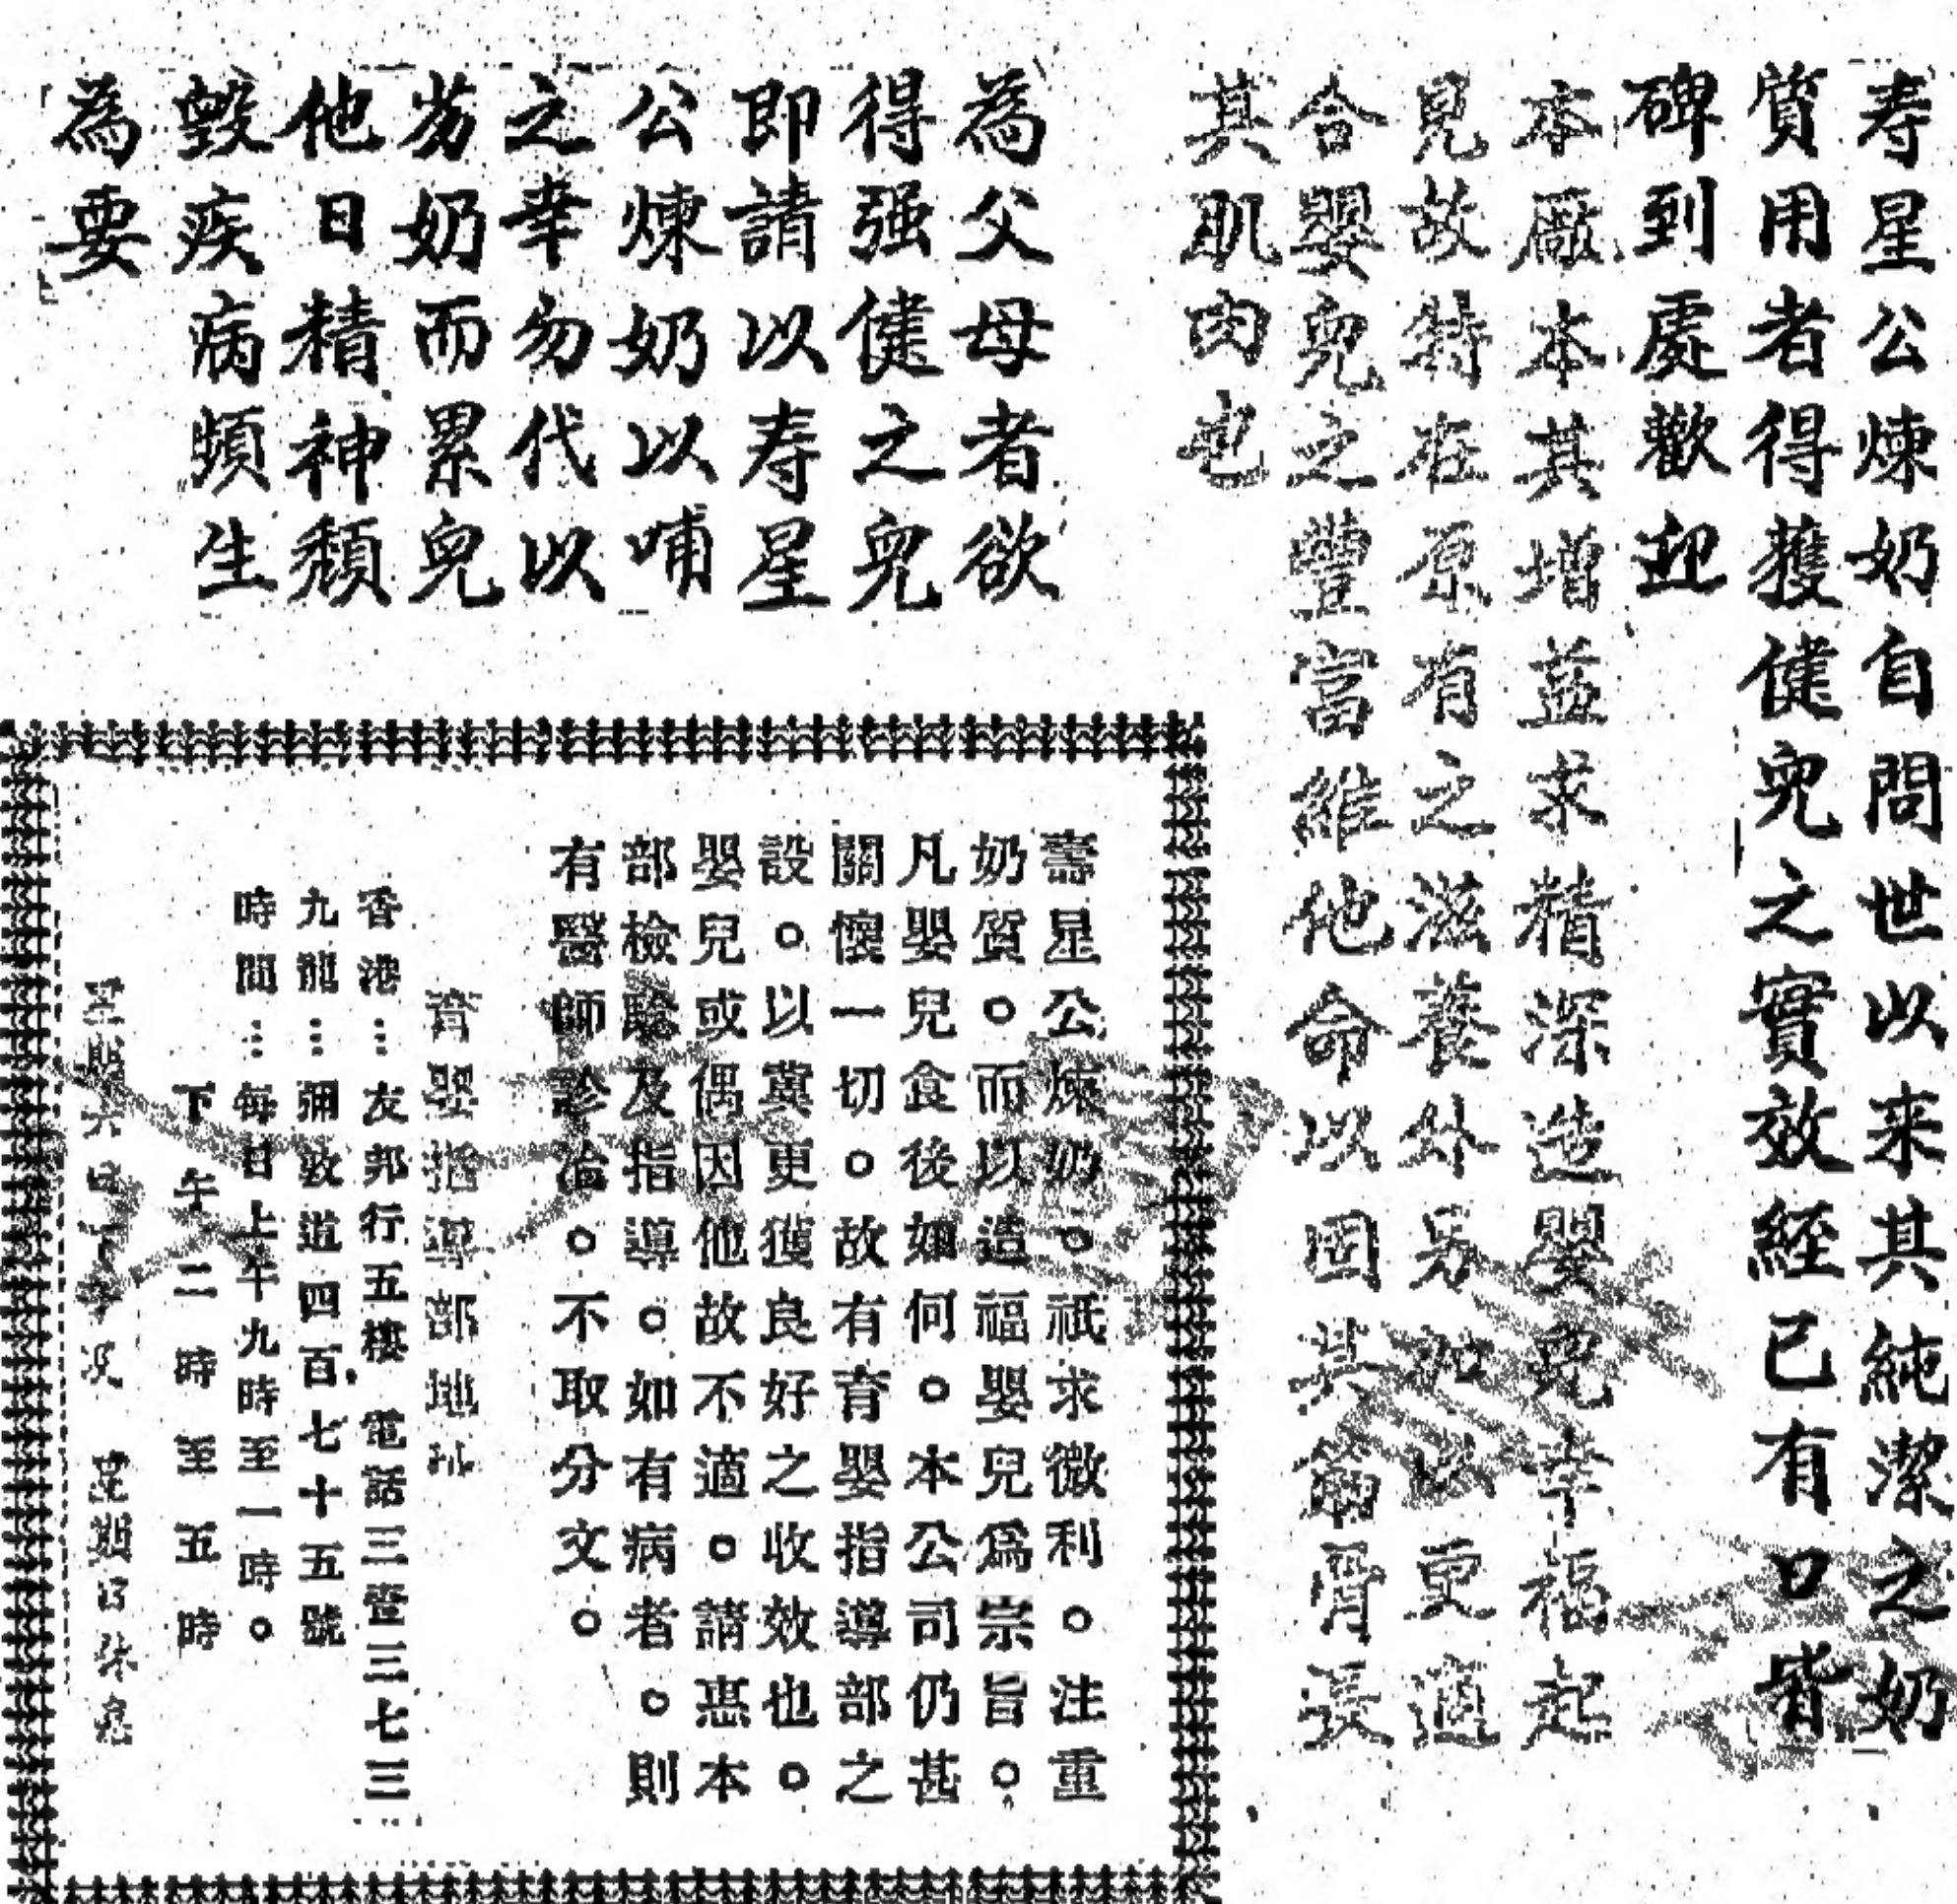 寿星公煉奶自問世以来其純潔之奶
質用者得獲健兒之實效經已有口皆
碑到處歡迎
本廠本其增益求精深造嬰兒幸福起
見故特在原有之滋養外另加以更適
合嬰兒之豐富維他命以固其筋骨長
其肌肉也
為父母者欲
得强健之兒
即請以寿星
公煉奶以哺
之幸勿代以
劣奶而累兒
他日精神頹
毀疾病頻生
為要
壽星公煉奶。祇求微利。注重
奶質。而以造福嬰兒爲宗旨。
凡嬰兒食後如何。本公司仍甚
關懷一切。故有育嬰指導部之
設。以冀更獲良好之收效也。
嬰兒或偶因他故不適。請惠本
部檢驗及指導。如有病者。則
有醫師診治。不取分文。
育嬰指導部地址
香港…友邦行五樓 電話三壹三七三
九龍…彌敦道四百七十五號
時間…每日上午九時至一時。
下午二時至五時
星期六日下午及 星期日休息